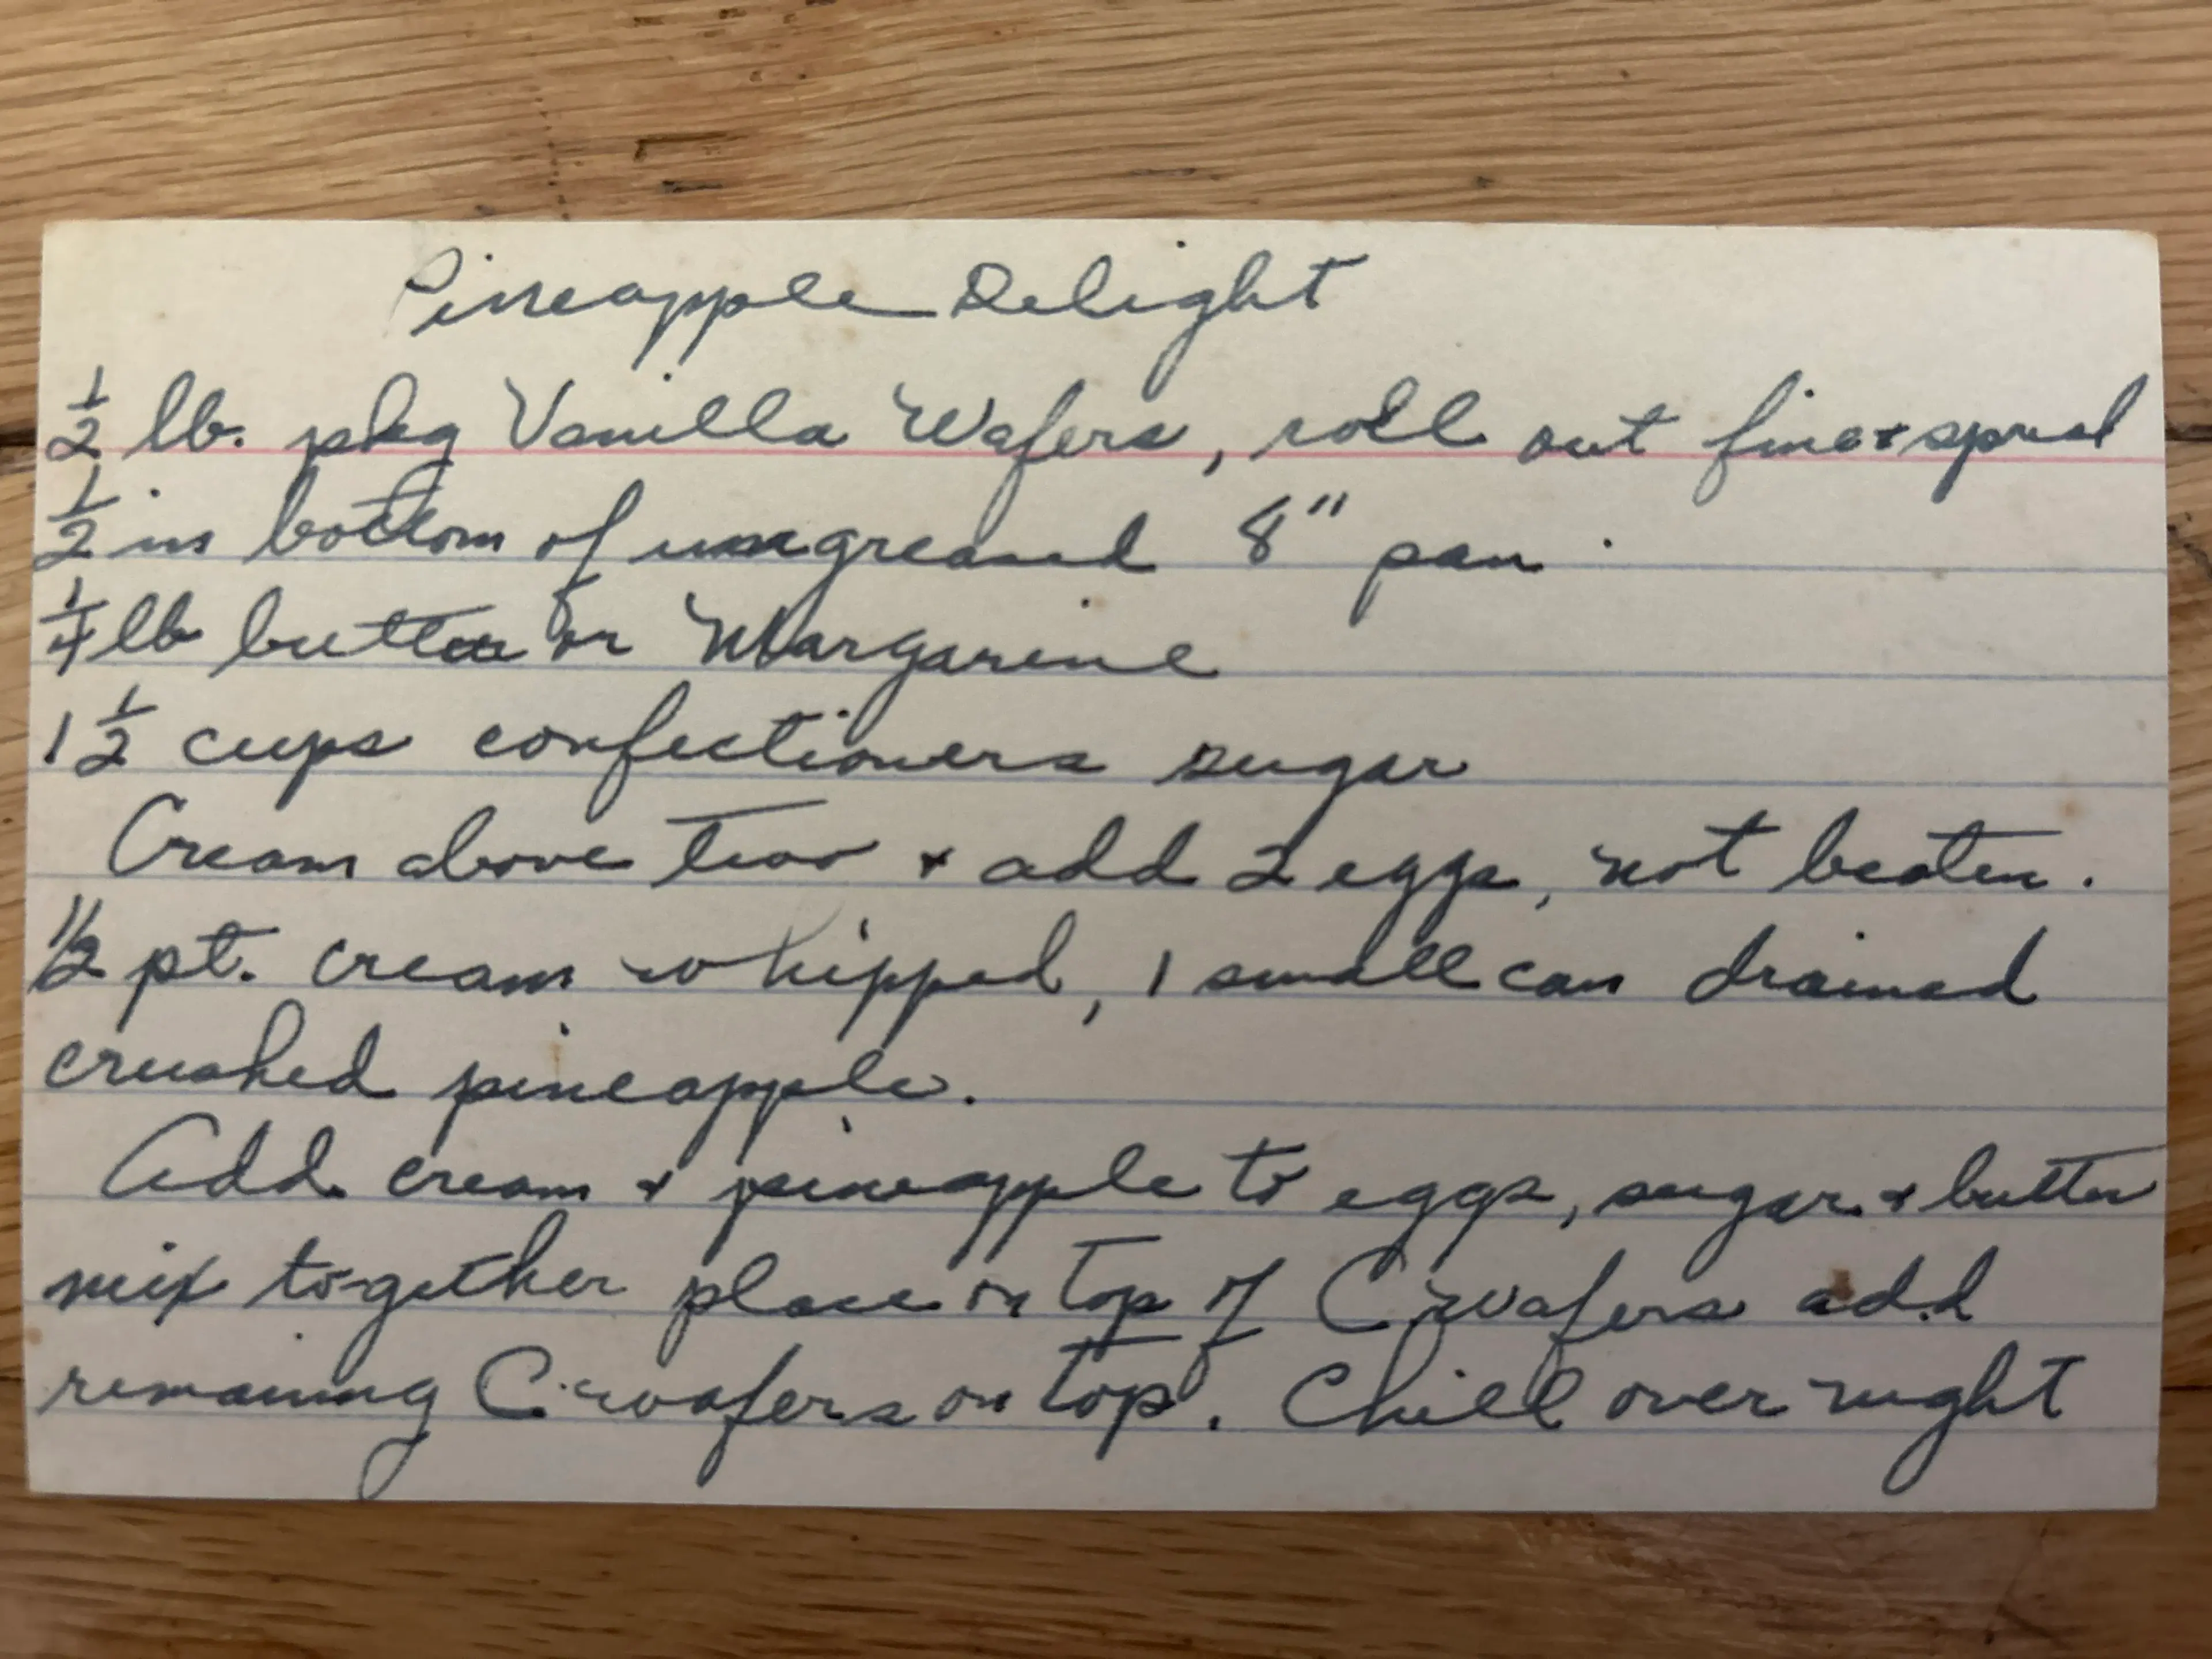 Pineapple Delight
1/2 lb. pkg Vanilla Wafers, roll out fine & spread
1/2 in bottom of ungreased 8" pan.
1/4 lb butter or Margarine
1 1/2 cups confectioners sugar
Cream above two & add 2 eggs, not beaten.
1/2 pt. cream whipped, 1 small can drained
crushed pineapple.
Add cream & pineapple to eggs, sugar & butter
mix together place on top of C wafers add
remaining C. wafers on top. Chill over night